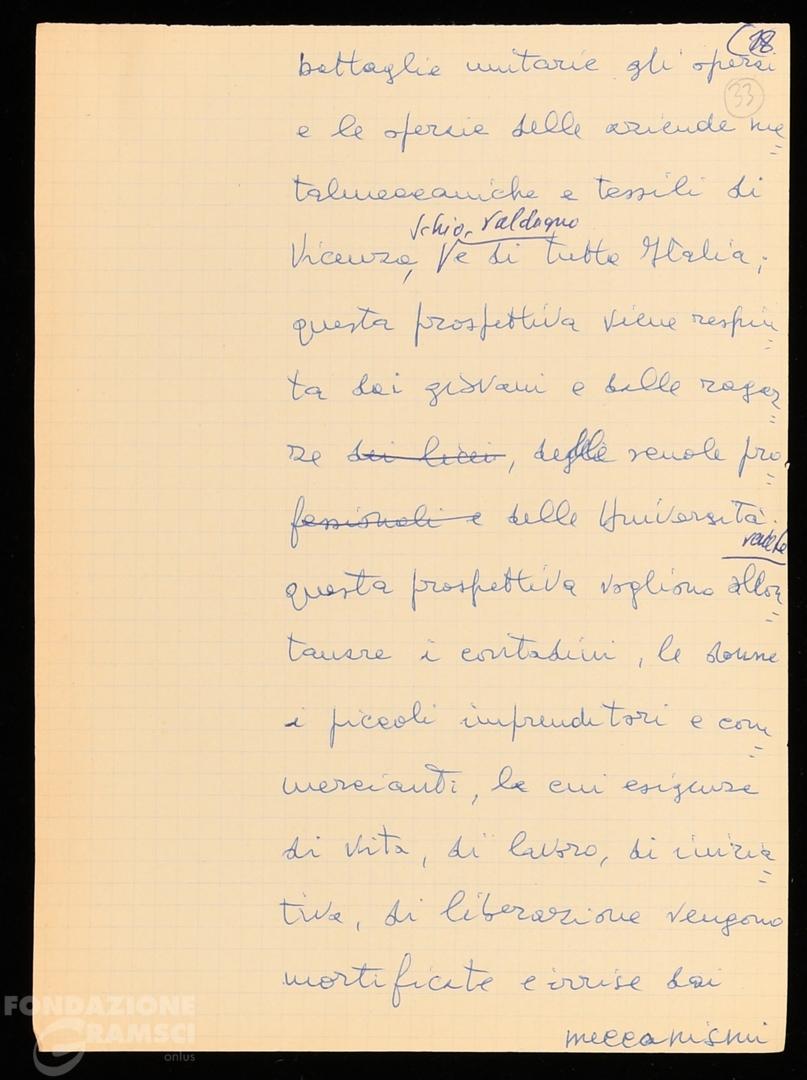 (18
33
battaglie unitarie gli operai
e le operaie delle aziende me=
talmeccaniche e tessili di
Schio, Valdagno
Vicenza, e di tutta Italia;
questa prospettiva viene respin=
ta dai giovani e dalle ragaz=
ze dei licei, delle scuole pro=
fessionali e delle Università.
questa prospettiva vogliono allon=
tanare i contadini, le donne
i piccoli imprenditori e com=
mercianti, le cui esigenze
di vita, di lavoro, di inizia=
tiva, di liberazione vengono
mortificate e irrise dai
meccanismi
FONDAZIONE
GRAMSCI
onlus